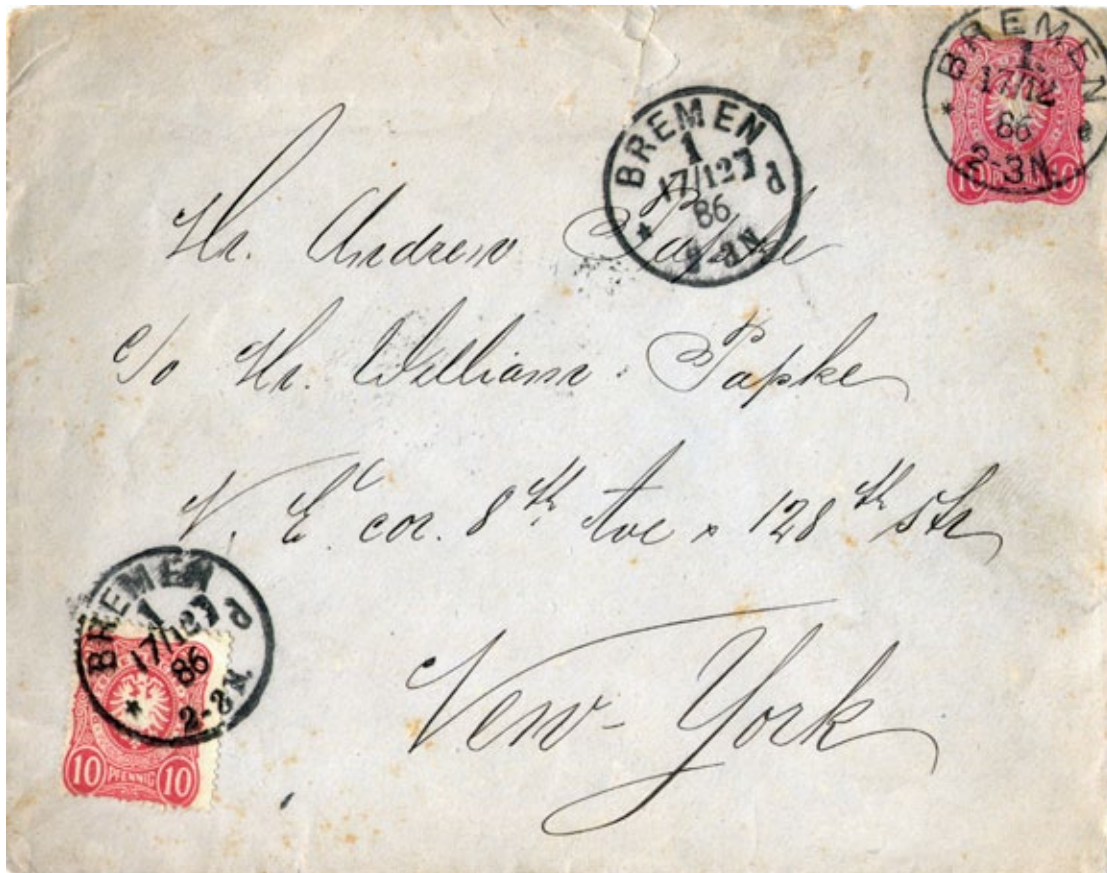 BREMEN
1.
17/12
86
2-3N.
* a
10 PFENNIG 10
BREMEN
1
17/12
86
* d
Hr. Andrew Papke
c/o Hr. William Papke
N. E. cor. 8th Ave & 128th Str
New-York
BREMEN
1
17/12
86
2-3N.
* d
10 PFENNIG 10